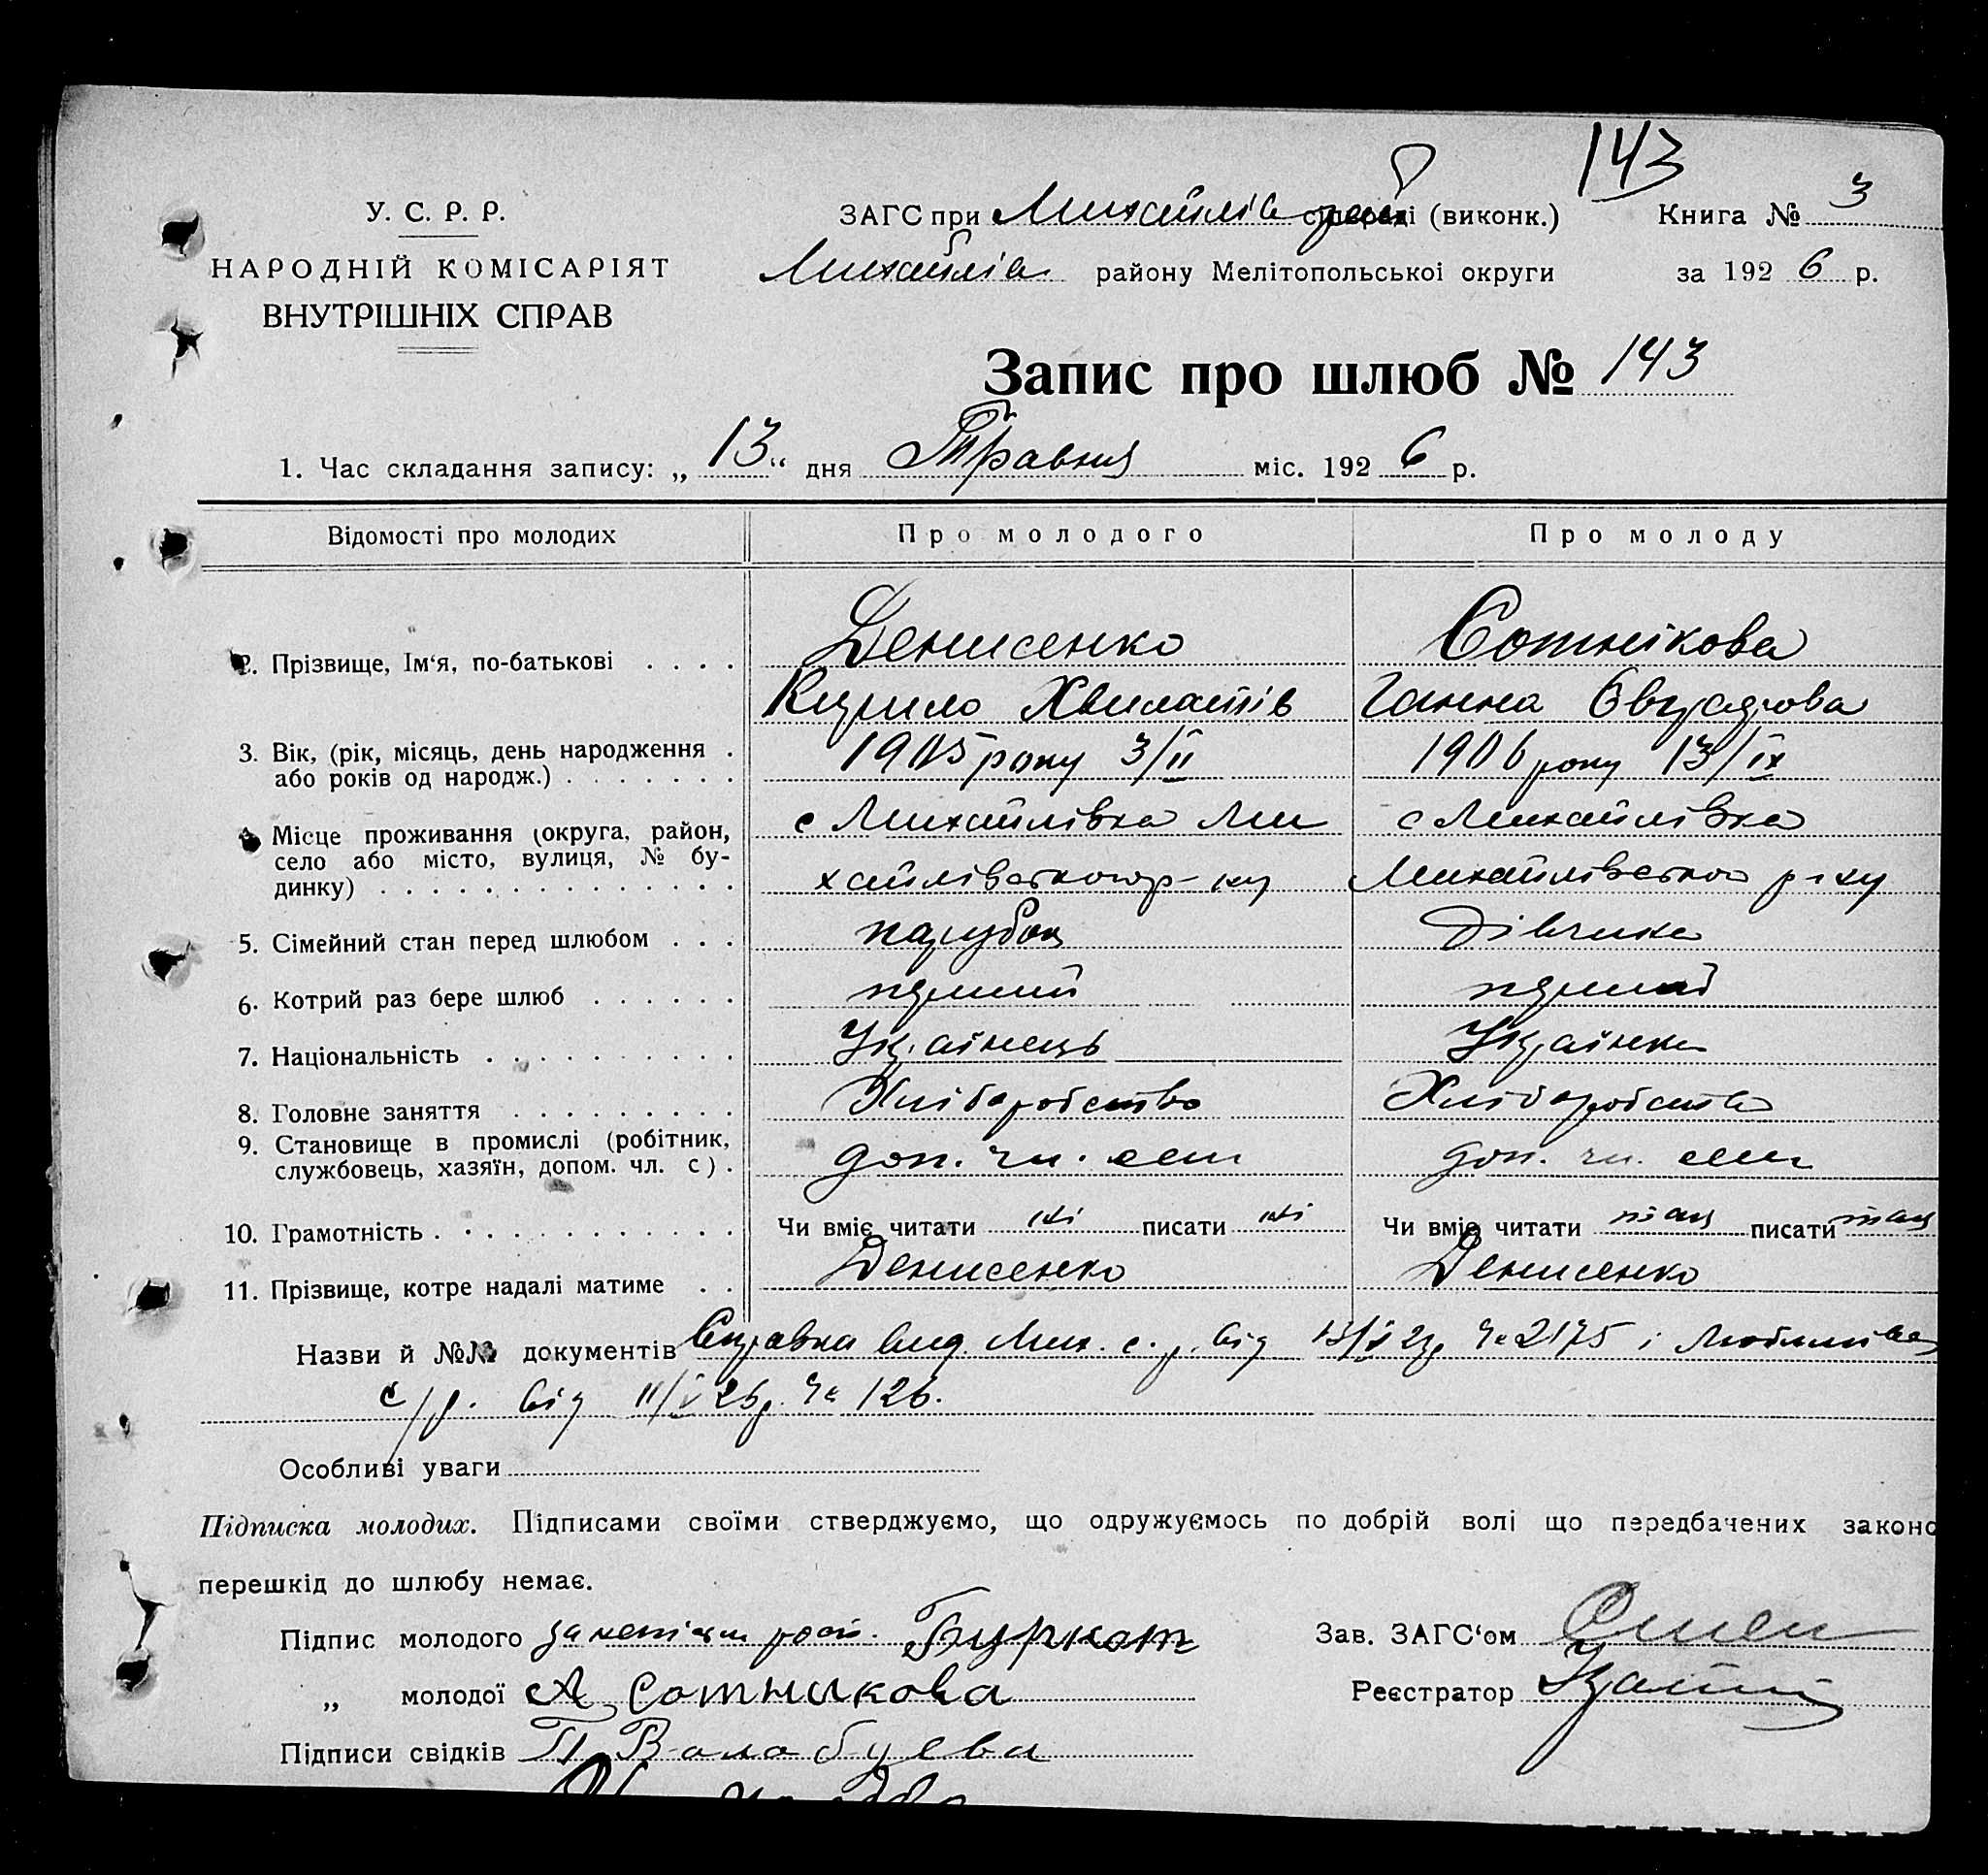 143
У. С. Р. Р.
НАРОДНІЙ КОМІСАРІЯТ
ВНУТРІШНІХ СПРАВ
ЗАГС при Михайлів рай (виконк.) Книга № 3
Михайлів району Мелітопольської округи за 192 6 р.
Запис про шлюб № 143
1. Час складання запису: „ 13 “ дня Травня міс. 192 6 р.
Відомості про молодих Про молодого Про молоду
2. Прізвище, Ім‘я, по-батькові . . . . Денисенко Сотнікова
Кирило Ганна
3. Вік, (рік, місяць, день народження . 1905 року 3/II 1906 року 13/IX
або років од народж.) . . . . . . .
Місце проживання (округа, район, с Михайлівка Ми с Михайлівка
село або місто, вулиця, № бу-
динку) . . . . . . . . . . . . . . хайлівського р-ну Михайлівского р-ну
5. Сімейний стан перед шлюбом . . . парубок дівчина
6. Котрий раз бере шлюб . . . . . . перший перший
7. Національність . . . . . . . . . . Українець Українка
8. Головне заняття . . . . . . . . . Хліборобство Хліборобство
9. Становище в промислі (робітник,
службовець, хазяїн, допом. чл. с) . доп. чл. сем доп. чл. сем
10. Грамотність . . . . . . . . . . . . Чи вміє читати ні писати ні Чи вміє читати так писати так
11. Прізвище, котре надалі матиме . . Денисенко Денисенко
Назви й №№ документів Справка вид. Мих. с. р. від 13/V 2175 і
с/р. від 11/V 26р. Че 126.
Особливі уваги
Підписка молодих. Підписами своїми стверджуємо, що одружуємось по добрій волі що передбачених законо
перешкід до шлюбу немає.
Підпис молодого за Буркот Зав. ЗАГС‘ом
„ молодої А Сотникова Реєстратор
Підписи свідків П Валабуева